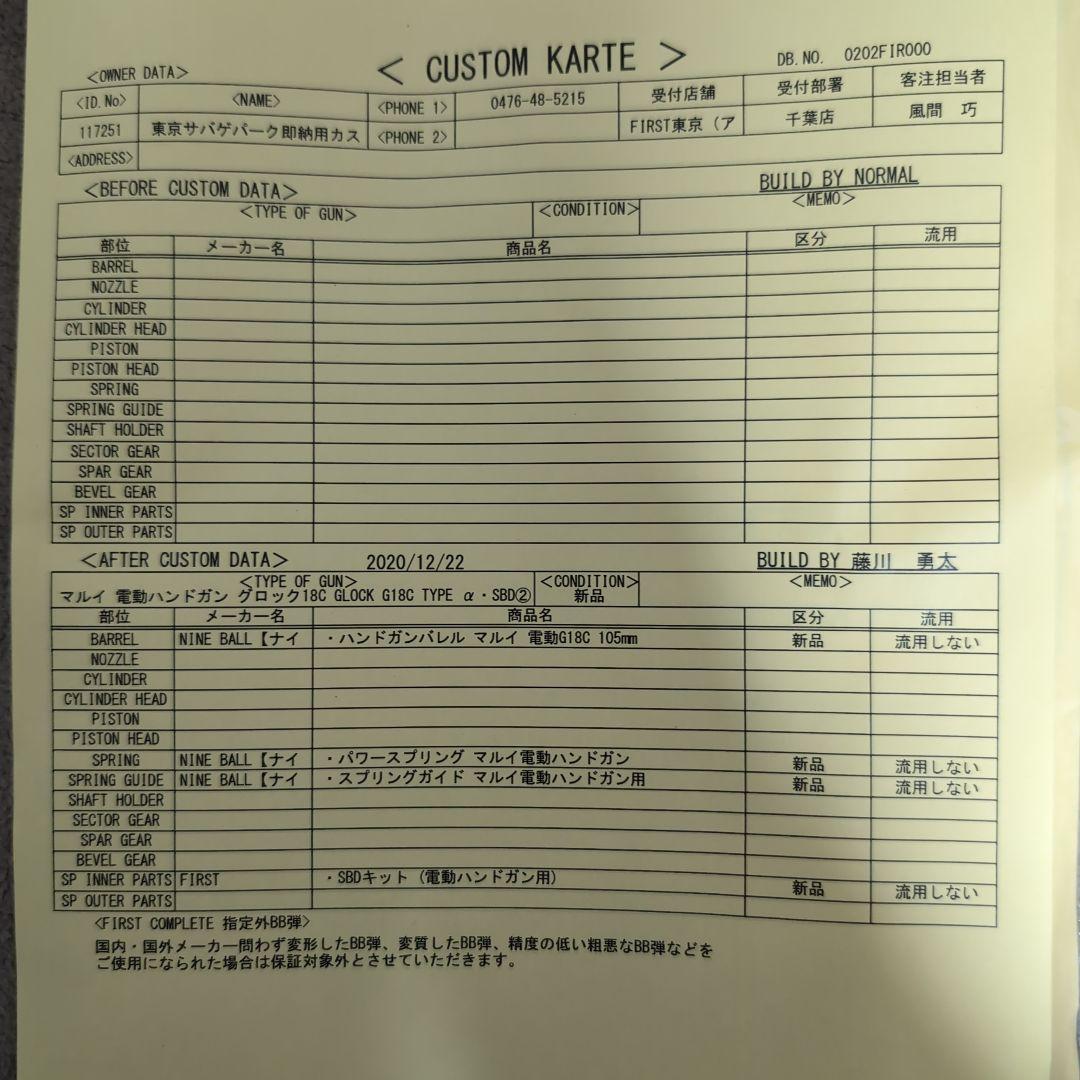 < CUSTOM KARTE >
DB. NO. 0202FIR000
<OWNER DATA>
<ID. No> <NAME> <PHONE 1> 0476-48-5215 受付店舗 受付部署 客注担当者
117251 東京サバゲパーク即納用カス <PHONE 2> FIRST東京（ア 千葉店 風間 巧
<ADDRESS>
<BEFORE CUSTOM DATA> BUILD BY NORMAL
<TYPE OF GUN> <CONDITION> <MEMO>
部位 メーカー名 商品名 区分 流用
BARREL
NOZZLE
CYLINDER
CYLINDER HEAD
PISTON
PISTON HEAD
SPRING
SPRING GUIDE
SHAFT HOLDER
SECTOR GEAR
SPAR GEAR
BEVEL GEAR
SP INNER PARTS
SP OUTER PARTS
<AFTER CUSTOM DATA> 2020/12/22 BUILD BY 藤川 勇太
<TYPE OF GUN> <CONDITION> <MEMO>
マルイ 電動ハンドガン グロック18C GLOCK G18C TYPE α・SBD② 新品
部位 メーカー名 商品名 区分 流用
BARREL NINE BALL【ナイ ・ハンドガンバレル マルイ 電動G18C 105mm 新品 流用しない
NOZZLE
CYLINDER
CYLINDER HEAD
PISTON
PISTON HEAD
SPRING NINE BALL【ナイ ・パワースプリング マルイ電動ハンドガン 新品 流用しない
SPRING GUIDE NINE BALL【ナイ ・スプリングガイド マルイ電動ハンドガン用 新品 流用しない
SHAFT HOLDER
SECTOR GEAR
SPAR GEAR
BEVEL GEAR
SP INNER PARTS FIRST ・SBDキット（電動ハンドガン用） 新品 流用しない
SP OUTER PARTS
<FIRST COMPLETE 指定外BB弾>
国内・国外メーカー問わず変形したBB弾、変質したBB弾、精度の低い粗悪なBB弾などを
ご使用になられた場合は保証対象外とさせていただきます。